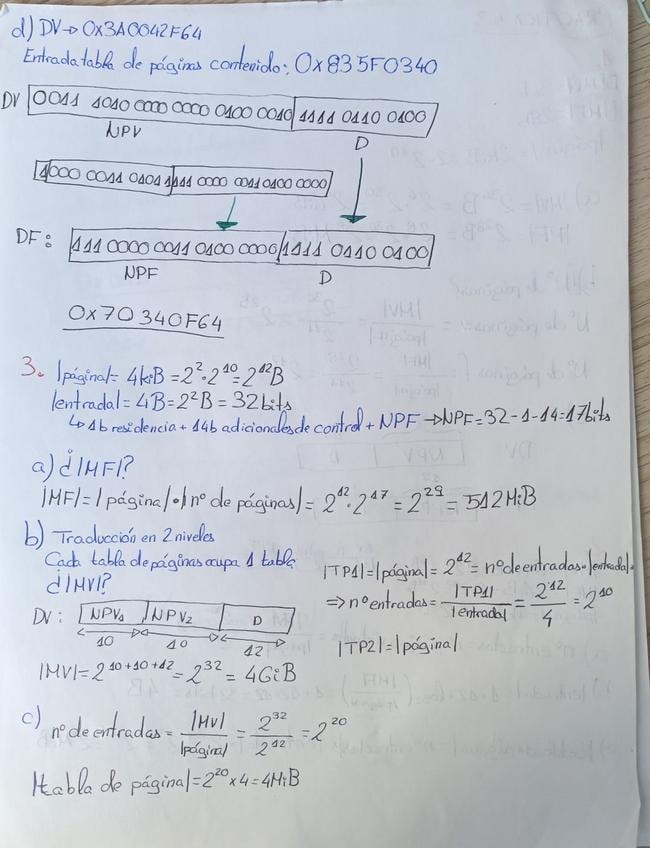 d) DV → 0x3A0042F64
Entrada tabla de páginas contenido: 0x835F0340
DV 0011 1010 0000 0000 0100 0010 1111 0110 0100
NPV D
1000 0011 0101 1111 0000 0011 0100 0000
DF: 111 0000 0011 0100 0000 1111 0110 0100
NPF D
0x70340F64
3. |página| = 4kiB = 2² · 2¹⁰ = 2¹² B
|entrada| = 4B = 2² B = 32 bits
↳ 1b residencia + 14b adicionales de control + NPF → NPF = 32 - 1 - 14 = 17 bits
a) ¿|MF|?
|MF| = |página| · |nº de páginas| = 2¹² · 2¹⁷ = 2²⁹ = 512 MiB
b) Traducción en 2 niveles
Cada tabla de páginas ocupa 1 tabla
¿|MV|?
DV: NPV₁ NPV₂ D
10 10 12
|MV| = 2¹⁰⁺¹⁰⁺¹² = 2³² = 4GiB
|TP1| = |página| = 2¹² = nº de entradas · |entrada| =
⇒ nº entradas = |TP1| / |entrada| = 2¹² / 4 = 2¹⁰
|TP2| = |página|
c) nº de entradas = |MV| / |página| = 2³² / 2¹² = 2²⁰
|tabla de página| = 2²⁰ x 4 = 4MiB